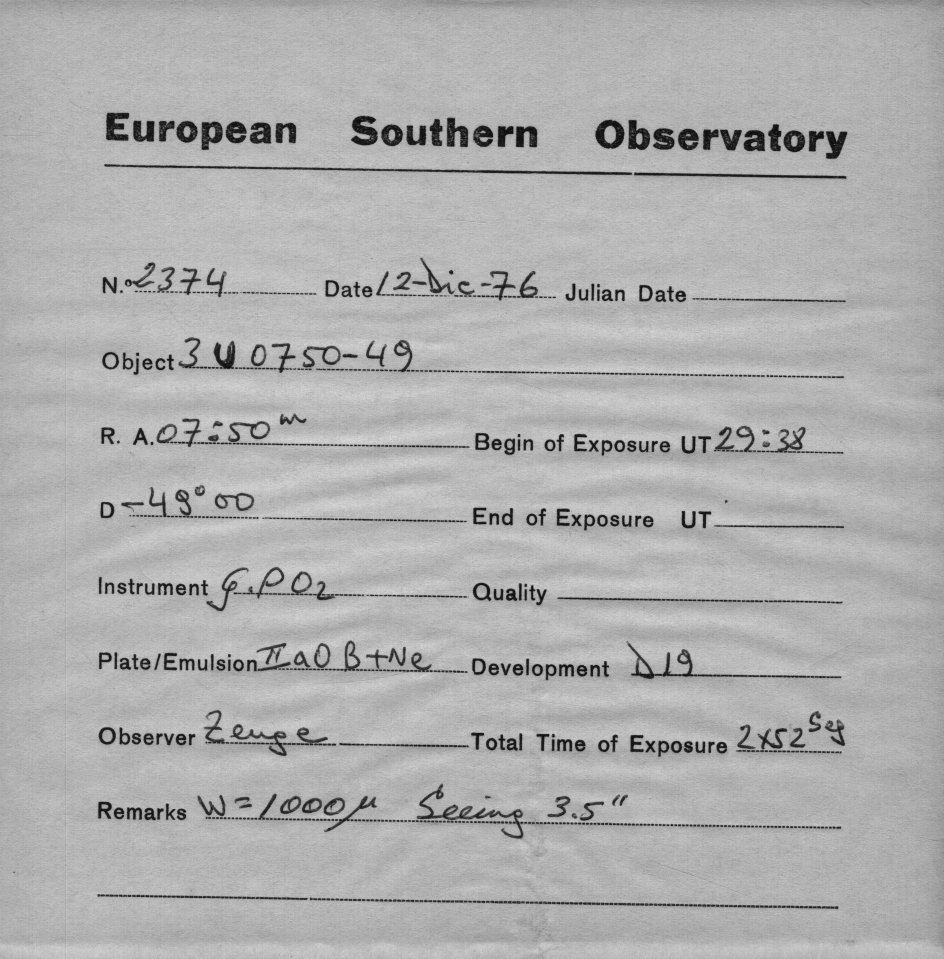 European Southern Observatory
N.º 2374 Date 12-Dic-76 Julian Date
Object 3U 0750-49
R. A. 07:50ᵐ Begin of Exposure UT 29:38
D -49°00 End of Exposure UT
Instrument G.PO2 Quality
Plate/Emulsion IIaO B+Ne Development D19
Observer Zeuge Total Time of Exposure 2x52 Seg
Remarks W=1000µ Seeing 3.5"